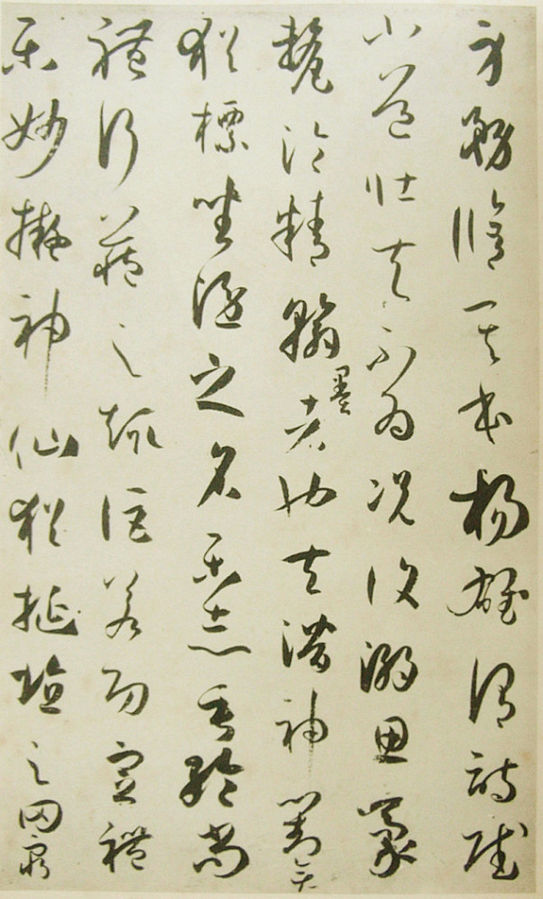 身務脩其本楊雄謂詩賦
小道壯夫不為況復溺思豪
氂淪精翰墨者也夫潛神對奕
猶標坐隱之名樂志垂綸尚
體行藏之趣詎若功宣禮
樂妙擬神仙猶埏埴之罔窮